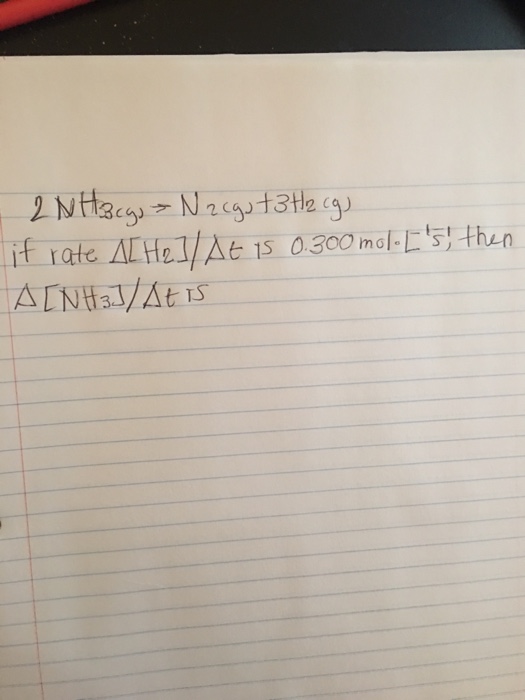 2 NH3(g) → N2(g) + 3H2(g)
if rate Δ[H2]/Δt is 0.300 mol·L⁻¹s⁻¹, then
Δ[NH3]/Δt is